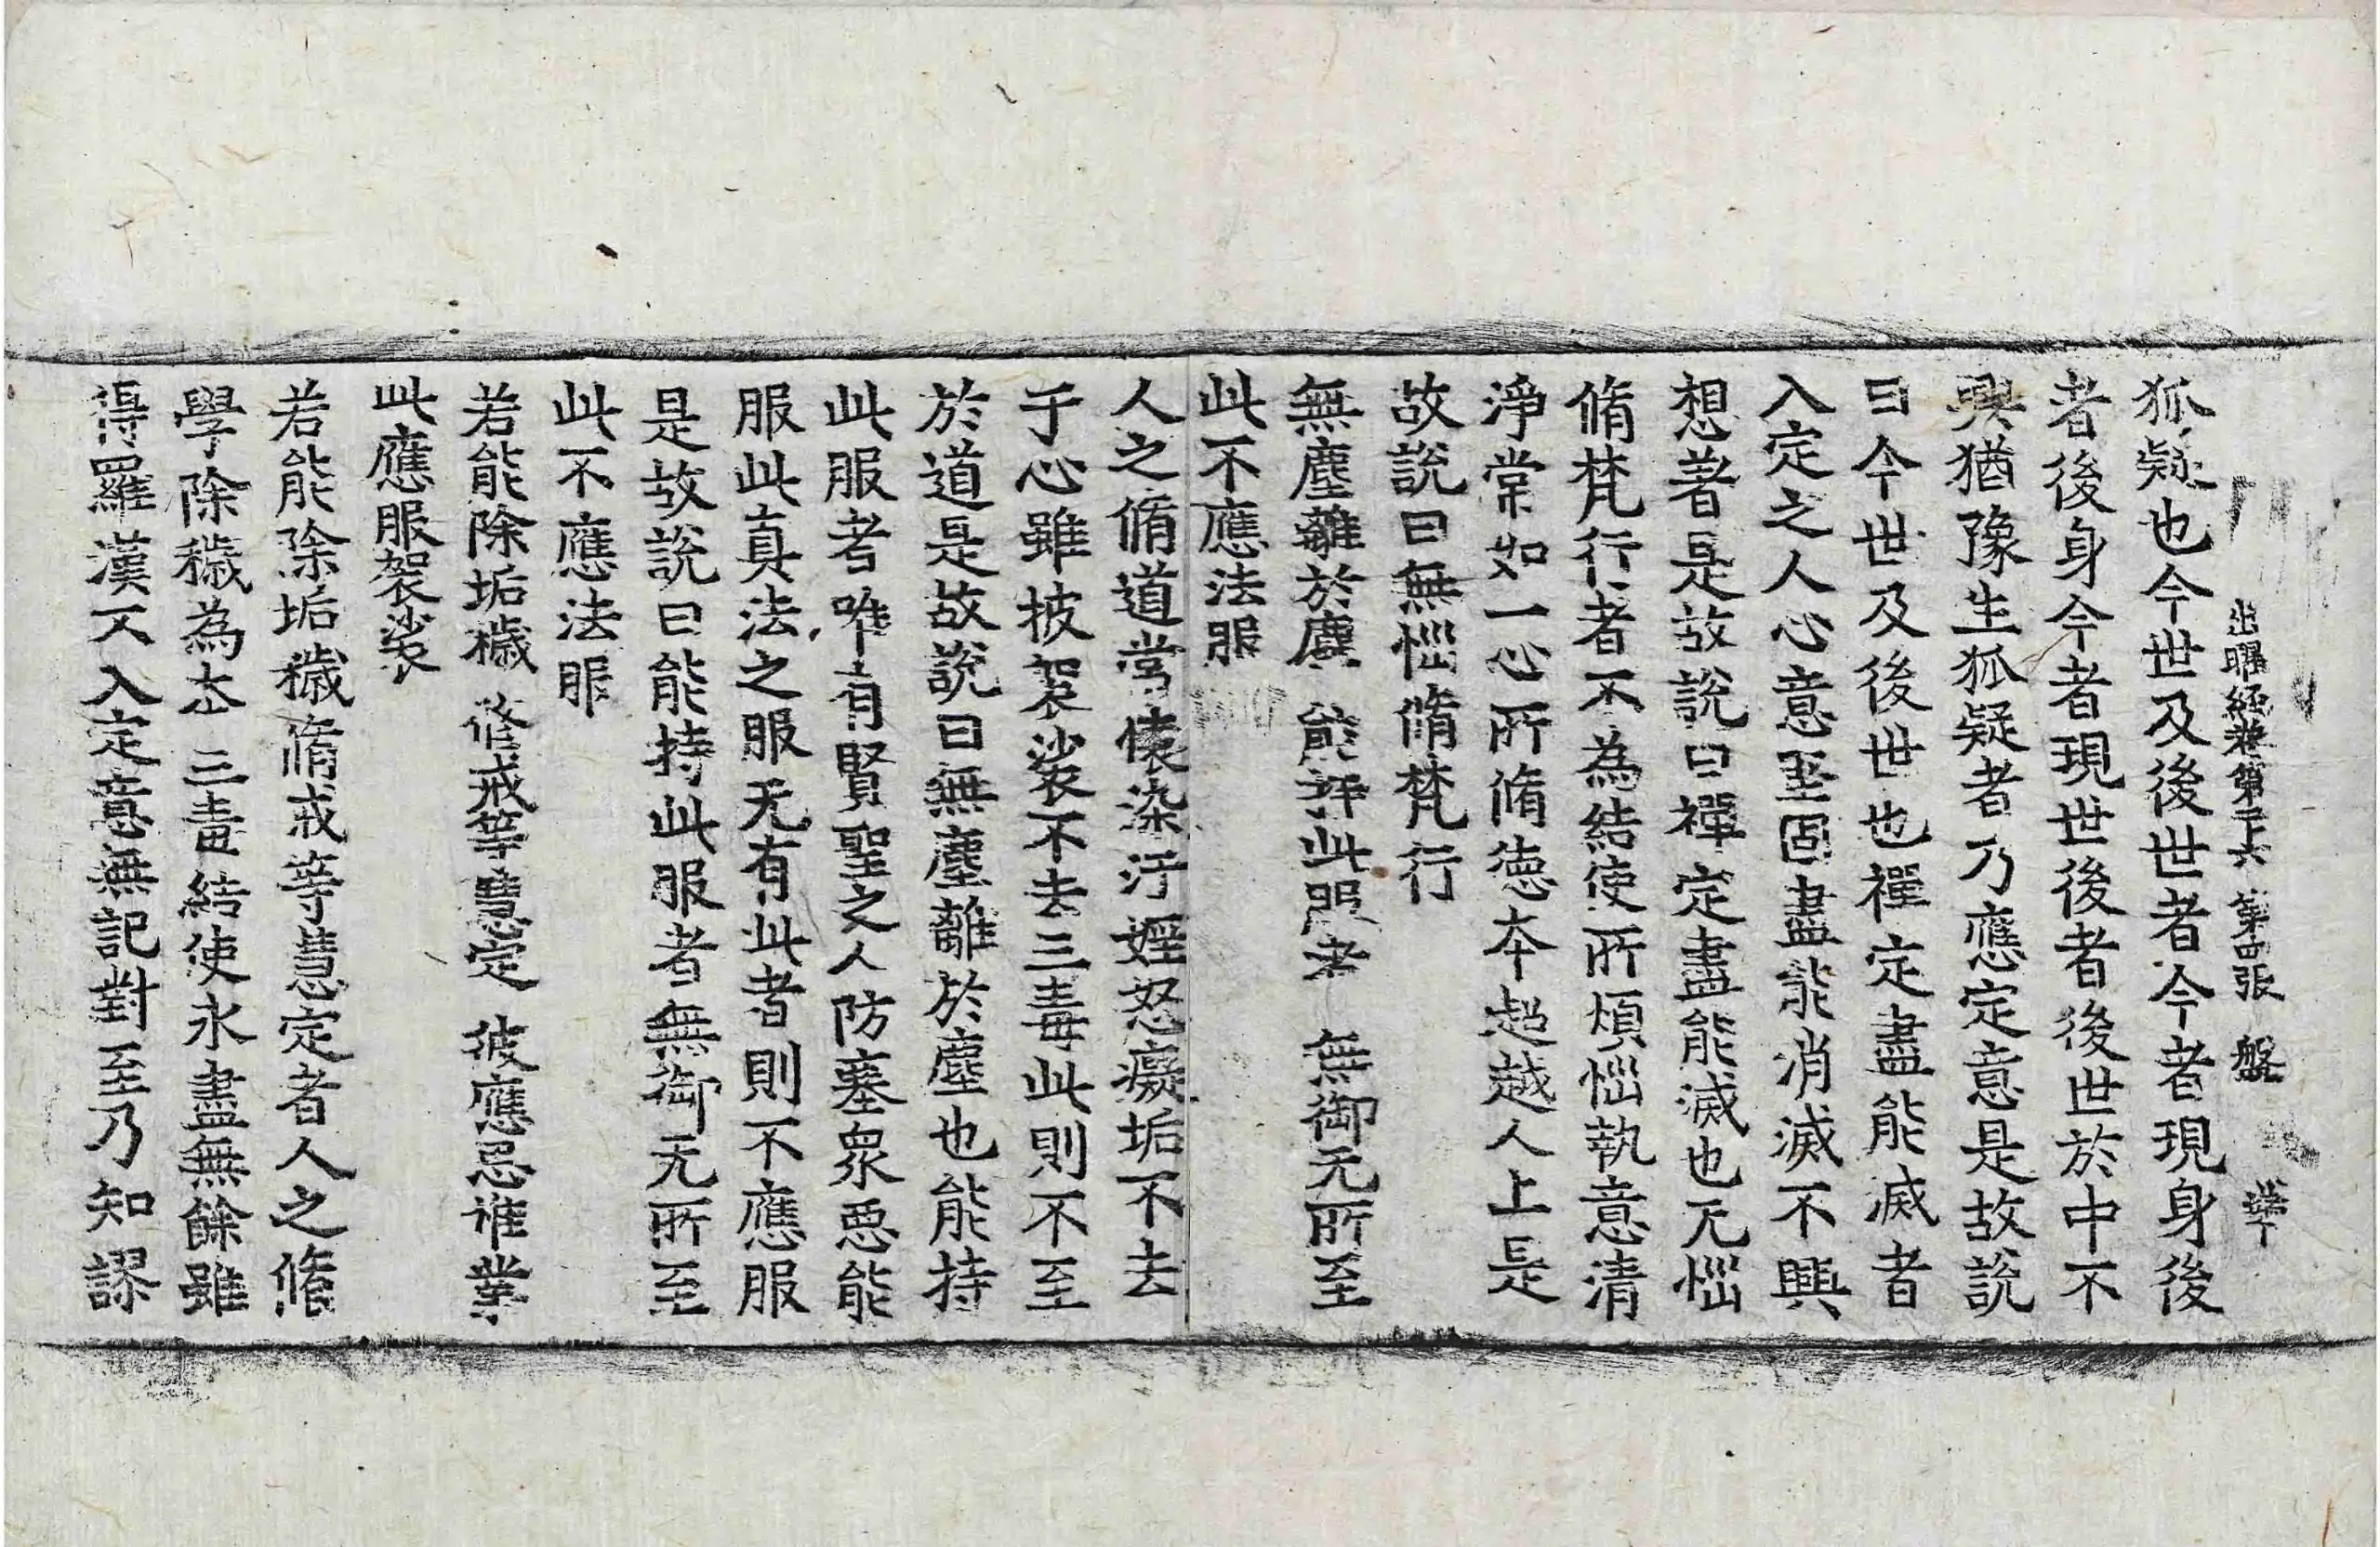 出曜經卷第二十六 第四張 盤
狐疑也今世及後世者今者現身後
者後身今者現世後者後世於中不
興猶豫生狐疑者乃應定意是故說
曰今世及後世也禪定盡能滅者
入定之人心意堅固盡能消滅不興
想著是故說曰禪定盡能滅也无惱
脩梵行者不為結使所煩惱執意清
淨常如一心所脩德本超越人上是
故說曰無惱脩梵行
無塵離於塵 能持此服者 無御无所至
此不應法服
人之脩道常懷染汙婬怒癡垢不去
于心雖披袈裟不去三毒此則不至
於道是故說曰無塵離於塵也能持
此服者唯有賢聖之人防塞衆惡能
服此真法之服无有此者則不應服
是故說曰能持此服者無御无所至
此不應法服
若能除垢穢 脩戒等慧定 彼應思惟業
此應服袈裟
若能除垢穢脩戒等慧定者人之脩
學除穢為本三毒結使永盡無餘雖
得羅漢不入定意無記對至乃知謬